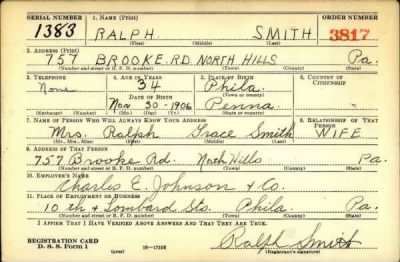 SERIAL NUMBER 1. NAME (Print) ORDER NUMBER
1383 RALPH SMITH 3817
(First) (Middle) (Last)
2. ADDRESS (Print)
757 BROOKE RD NORTH HILLS Pa.
(Number and street or R. F. D. number) (Town) (County) (State)
3. TELEPHONE 4. AGE IN YEARS 5. PLACE OF BIRTH 6. COUNTRY OF CITIZENSHIP
None 34 Phila
DATE OF BIRTH (Town or county)
Nov 30-1906 Penna.
(Mo.) (Day) (Yr.) (State or country)
7. NAME OF PERSON WHO WILL ALWAYS KNOW YOUR ADDRESS 8. RELATIONSHIP OF THAT PERSON
Mrs. Ralph Grace Smith WIFE
(Mr., Mrs., Miss) (First) (Middle) (Last)
9. ADDRESS OF THAT PERSON
757 Brooke Rd. North Hills Pa.
(Number and street or R. F. D. number) (Town) (County) (State)
10. EMPLOYER'S NAME
Charles E. Johnson & Co.
11. PLACE OF EMPLOYMENT OR BUSINESS
10th & Lombard Sts. Phila Pa.
(Number and street or R. F. D. number) (Town) (County) (State)
I AFFIRM THAT I HAVE VERIFIED ABOVE ANSWERS AND THAT THEY ARE TRUE.
REGISTRATION CARD
D. S. S. Form 1 (over) 16-17105 Ralph Smith
(Registrant's signature)